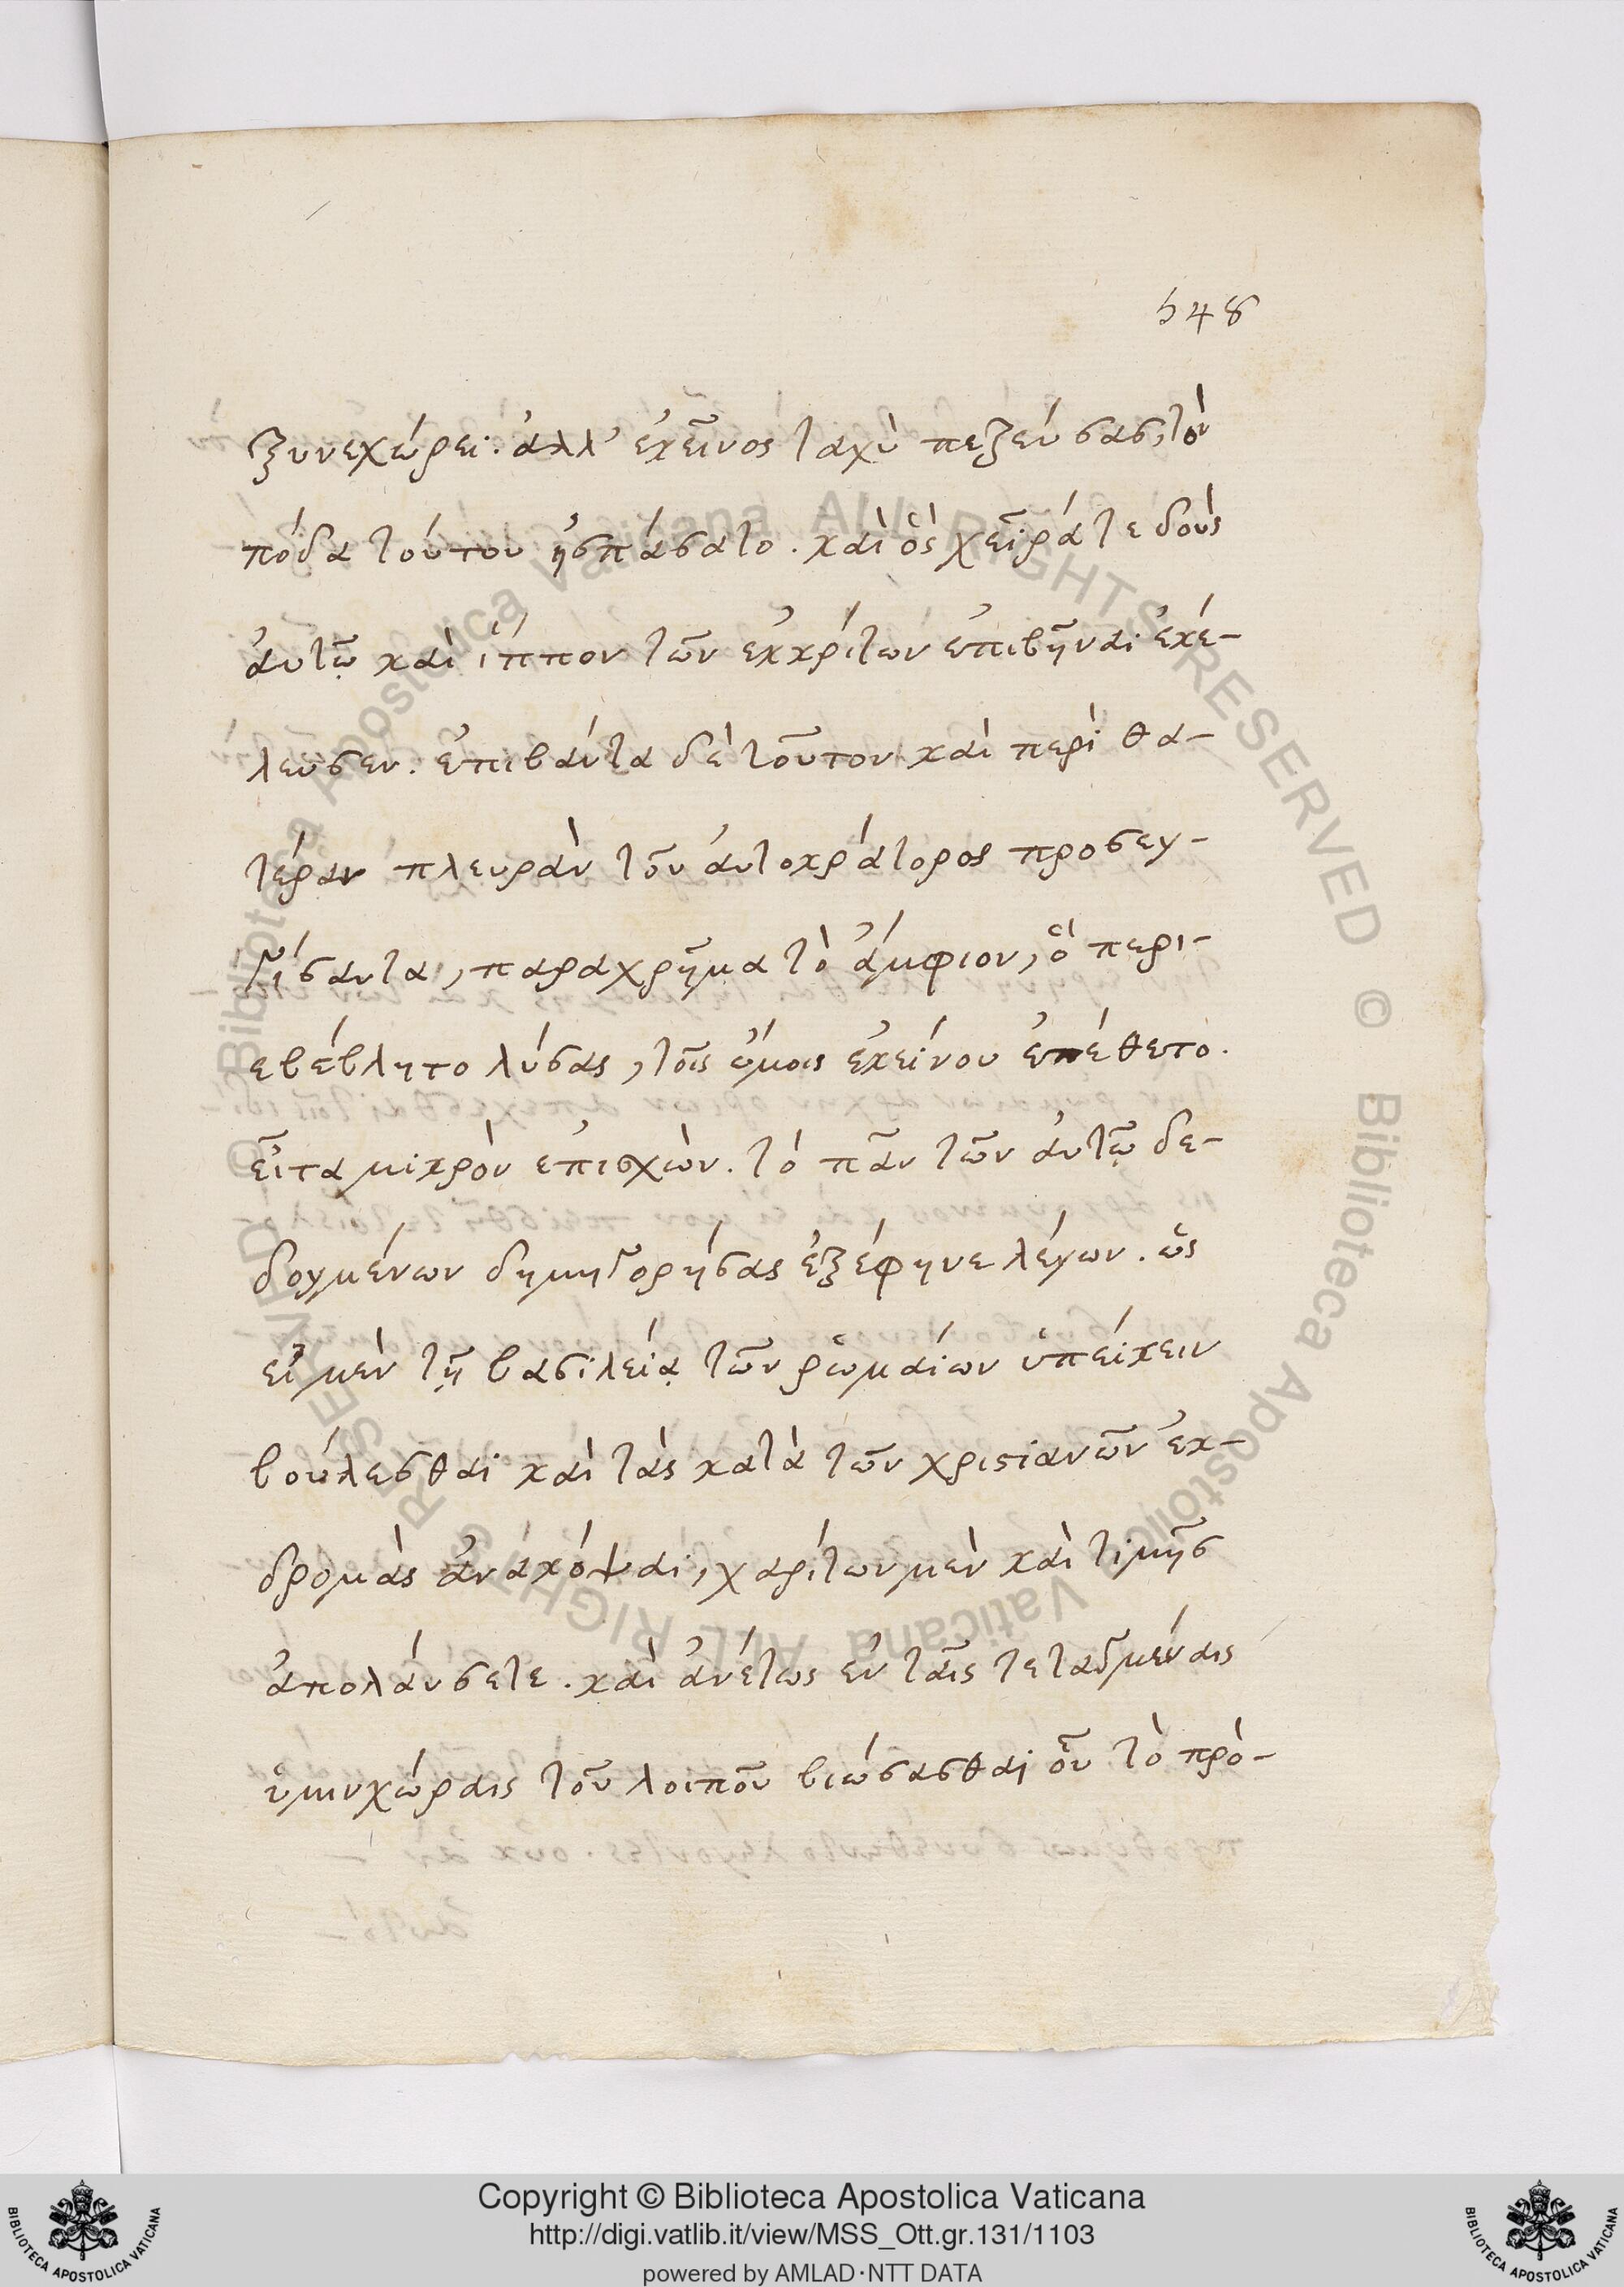 548
ξυνεχώρει· ἀλλ' ἐκεῖνος ταχὺ πεζεύσας, τὸν
πόδα τούτου ἠσπάσατο. καὶ ὃς χεῖρά τε δοὺς
αὐτῷ καὶ ἵππον τῶν ἐκκρίτων ἐπιβῆναι ἐκέ-
λευσεν. ἐπιβάντα δὲ τοῦτον καὶ περὶ θα-
τέραν πλευρὰν τοῦ αὐτοκράτορος προσεγ-
γίσαντα, παραχρῆμα τὸ ἄμφιον, ὃ περι-
εβέβλητο λύσας, τοῖς ὤμοις ἐκείνου ἐπέθετο.
εἶτα μικρὸν ἐπισχὼν. τὸ πᾶν τῶν αὐτῷ δε-
δογμένων δημηγορήσας ἐξέφηνε λέγων. ὡς
εἰ μὲν τῇ βασιλείᾳ τῶν ῥωμαίων ὑπείκειν
βούλεσθαι καὶ τὰς κατὰ τῶν χριστιανῶν ἐκ-
δρομὰς ἀνακόψαι, χαρίτων μὲν καὶ τιμῆς
ἀπολαύσετε. καὶ ἀνέτως ἐν ταῖς τεταγμέναις
ὑμιν χώραις τοῦ λοιποῦ βιώσασθαι οὗ τὸ πρό-
Copyright © Biblioteca Apostolica Vaticana
http://digi.vatlib.it/view/MSS_Ott.gr.131/1103
powered by AMLAD·NTT DATA
BIBLIOTECA APOSTOLICA VATICANA
BIBLIOTECA APOSTOLICA VATICANA
© Biblioteca Apostolica Vaticana ALL RIGHTS RESERVED
© Biblioteca Apostolica Vaticana ALL RIGHTS RESERVED